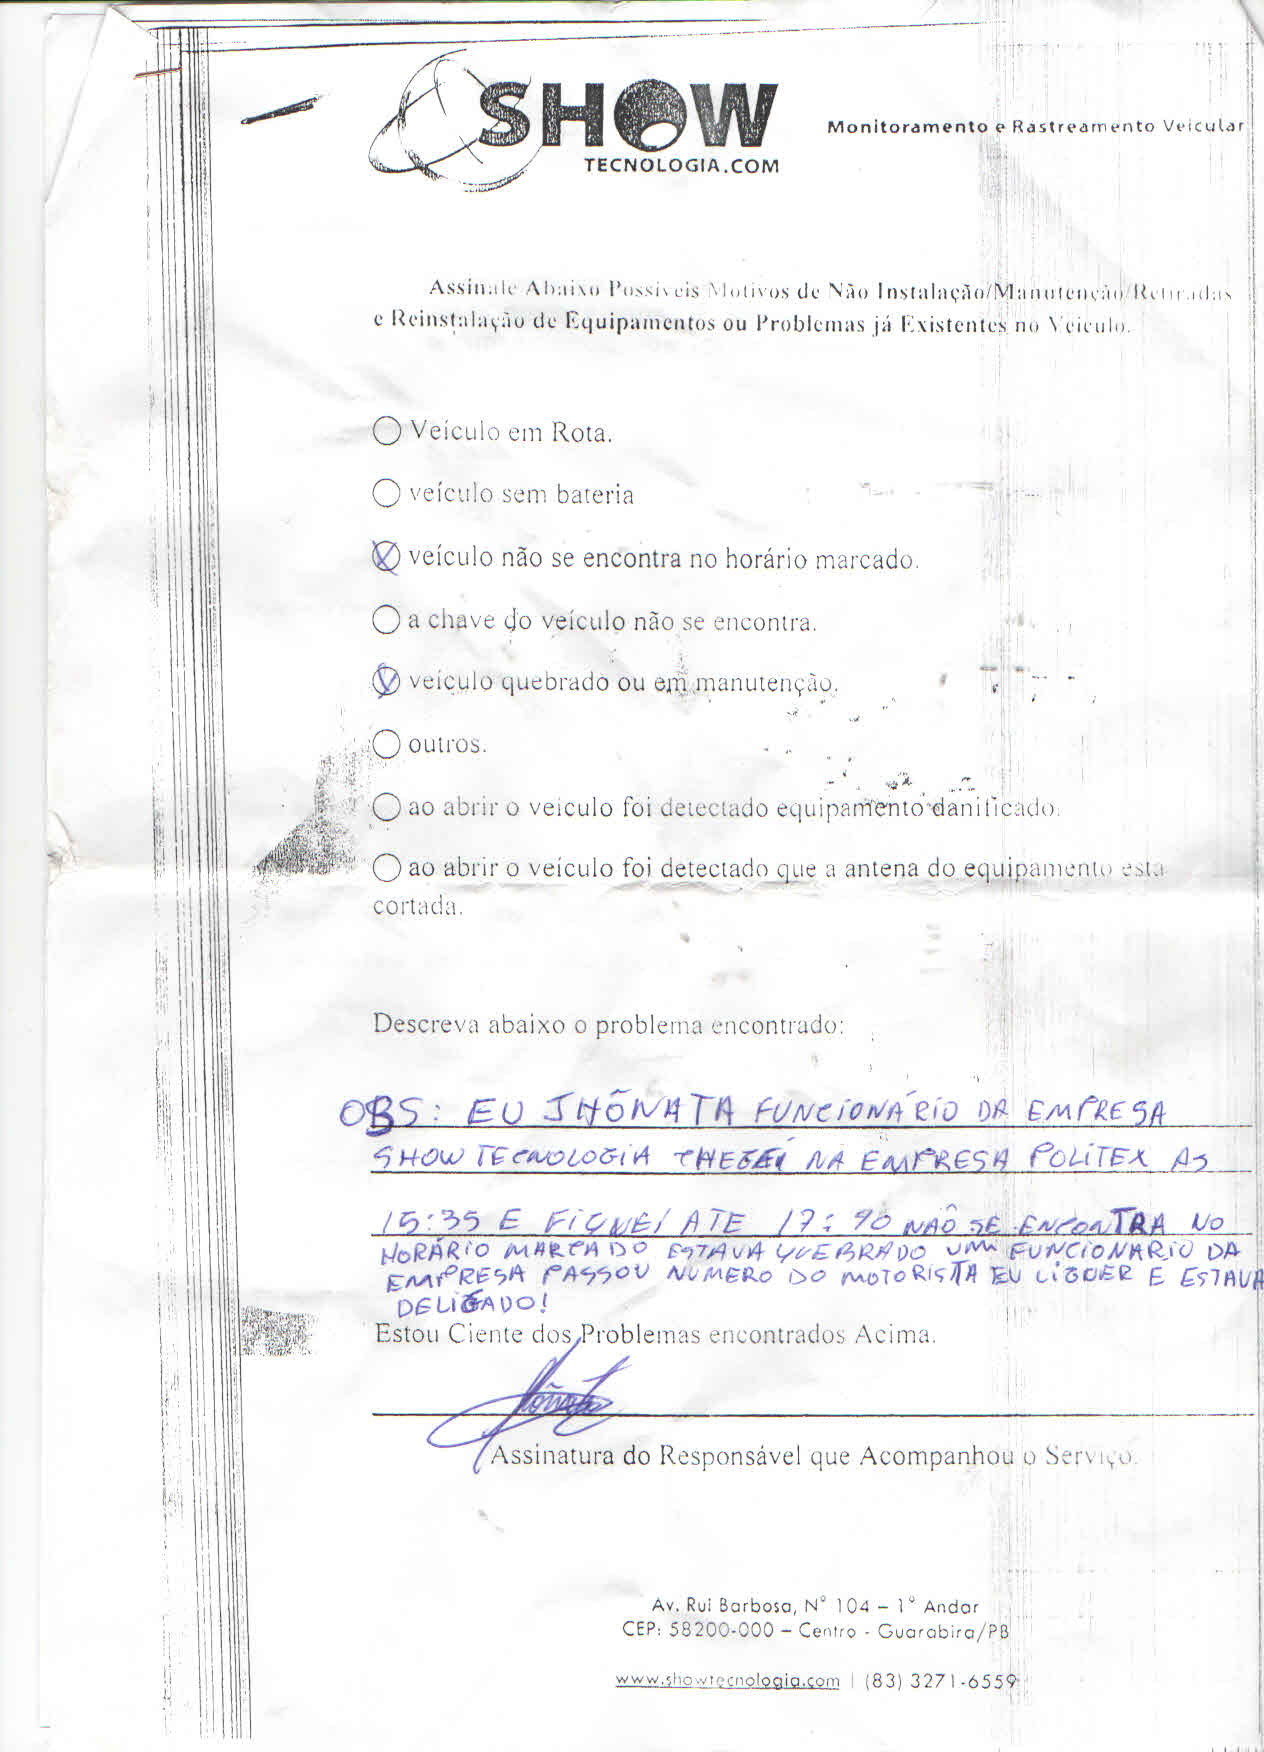 SHOW
TECNOLOGIA.COM
Monitoramento e Rastreamento Veicular
Assinale Abaixo Possíveis Motivos de Não Instalação/Manutenção/Retiradas
e Reinstalação de Equipamentos ou Problemas já Existentes no Veiculo.
Veículo em Rota.
veículo sem bateria
veículo não se encontra no horário marcado.
a chave do veículo não se encontra.
veiculo quebrado ou em manutenção.
outros.
ao abrir o veiculo foi detectado equipamento danificado.
ao abrir o veículo foi detectado que a antena do equipamento esta
cortada.
Descreva abaixo o problema encontrado:
OBS: EU JHÔNATA FUNCIONÁRIO DA EMPRESA
SHOW TECNOLOGIA CHEGEI NA EMPRESA POLITEX AS
15:35 E FIQUEI ATE 17:40 NAÕ SE ENCONTRA NO
HORÁRIO MARCADO ESTAVA QUEBRADO UM FUNCIONARIO DA
EMPRESA PASSOU NUMERO DO MOTORISTA EU LIGUER E ESTAVA
DELIGADO!
Estou Ciente dos Problemas encontrados Acima.
Assinatura do Responsável que Acompanhou o Serviço.
Av. Rui Barbosa, N° 104 – 1° Andar
CEP: 58200-000 – Centro - Guarabira/PB
www.showtecnologia.com | (83) 3271-6559